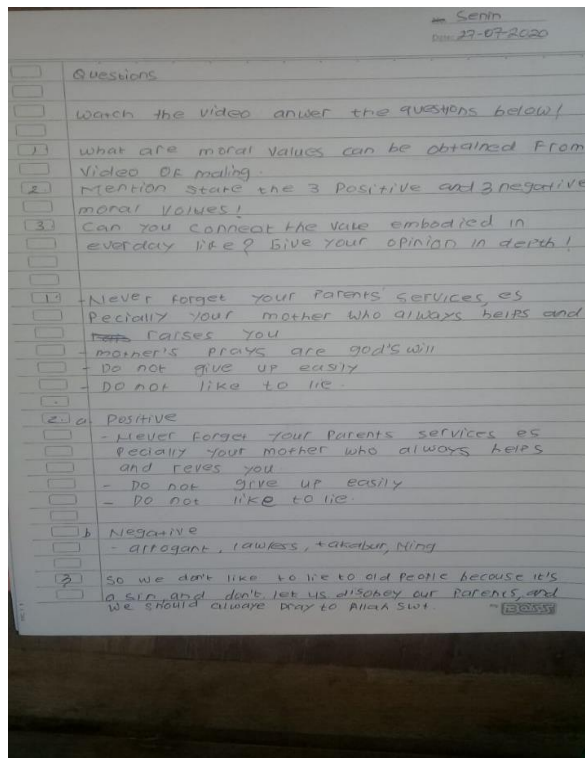 Senin
Date: 27-07-2020
Questions
Watch the video anwer the questions below!
1 What are moral values can be obtained From
Video OF maling.
2. Mention state the 3 Positive and 3 negative
moral values!
3 Can you conneat the vale embodied in
everday life? Give your opinion in depth!
1. - Never Forget your Parents services, es
Pecially your mother who always helps and
raises you
- mother's prays are god's will
- Do not give up easily
- Do not like to lie.
2. a. Positive
- Never Forget your Parents services es
Pecially your mother who always helps
and reves you
- Do not give up easily
- Do not like to lie.
b Negative
- arrogant, lawless, takabur,
3 So we don't like to lie to old People because it's
a sin, and don't let us disobey our Parents, and
we should alwaye pray to Allah swt.
BOSS